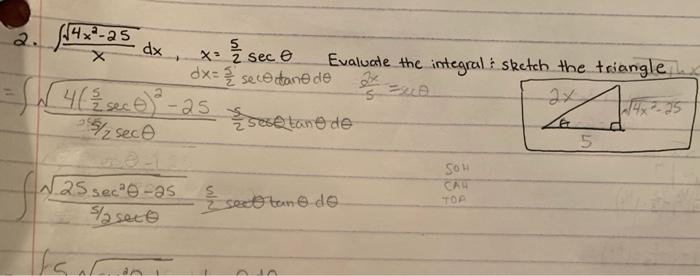 2. ∫ √4x²-25 / x dx, x = 5/2 sec θ Evaluate the integral & sketch the triangle
dx = 5/2 secθ tanθ dθ 2x/5 = sec θ
= ∫ √4(5/2 sec θ)² - 25 / 5/2 sec θ 5/2 secθ tanθ dθ
2x √4x²-25
θ
5
SOH
CAH
TOA
∫ √25 sec²θ - 25 / 5/2 sec θ 5/2 secθ tanθ dθ